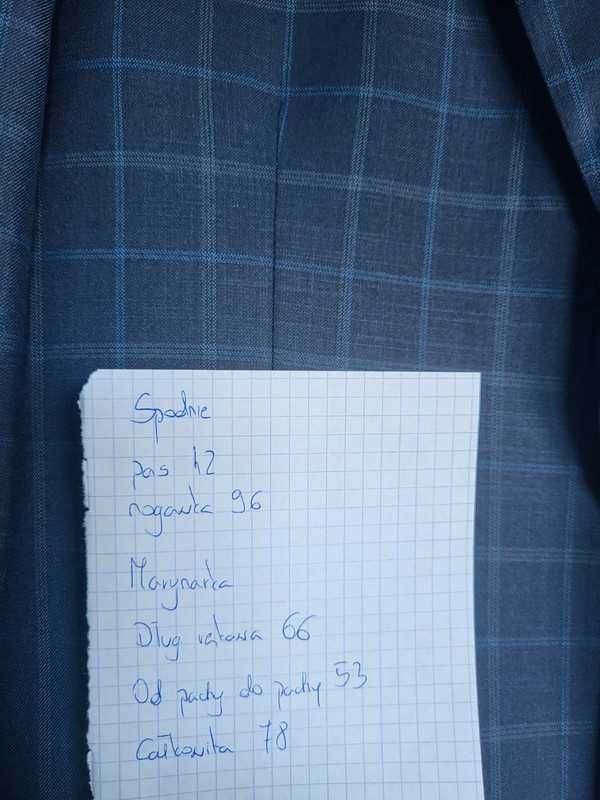 Spodnie
pas 42
nogawka 96
Marynarka
Dług rękawa 66
Od pachy do pachy 53
Całkowita 78